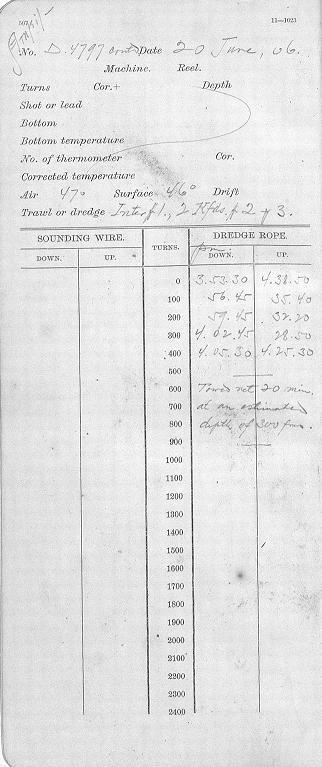 11—1023
No. D. 4797 contd Date 20 June, 06.
Machine. Reel.
Turns Cor.+ Depth
Shot or lead
Bottom
Bottom temperature
No. of thermometer Cor.
Corrected temperature
Air 47° Surface 46° Drift
Trawl or dredge Inter #1, 2 Kfds, # 2 & 3.
SOUNDING WIRE. TURNS. DREDGE ROPE.
DOWN. UP. pm. DOWN. UP.
0 3.53.30 4.38.50
100 56.45 35.40
200 59.45 32.20
300 4.02.45 28.50
400 4.05.30 4.25.30
500
600 Towed net 20 min.
700 at an estimated
800 depth of 300 fms.
900
1000
1100
1200
1300
1400
1500
1600
1700
1800
1900
2000
2100
2200
2300
2400